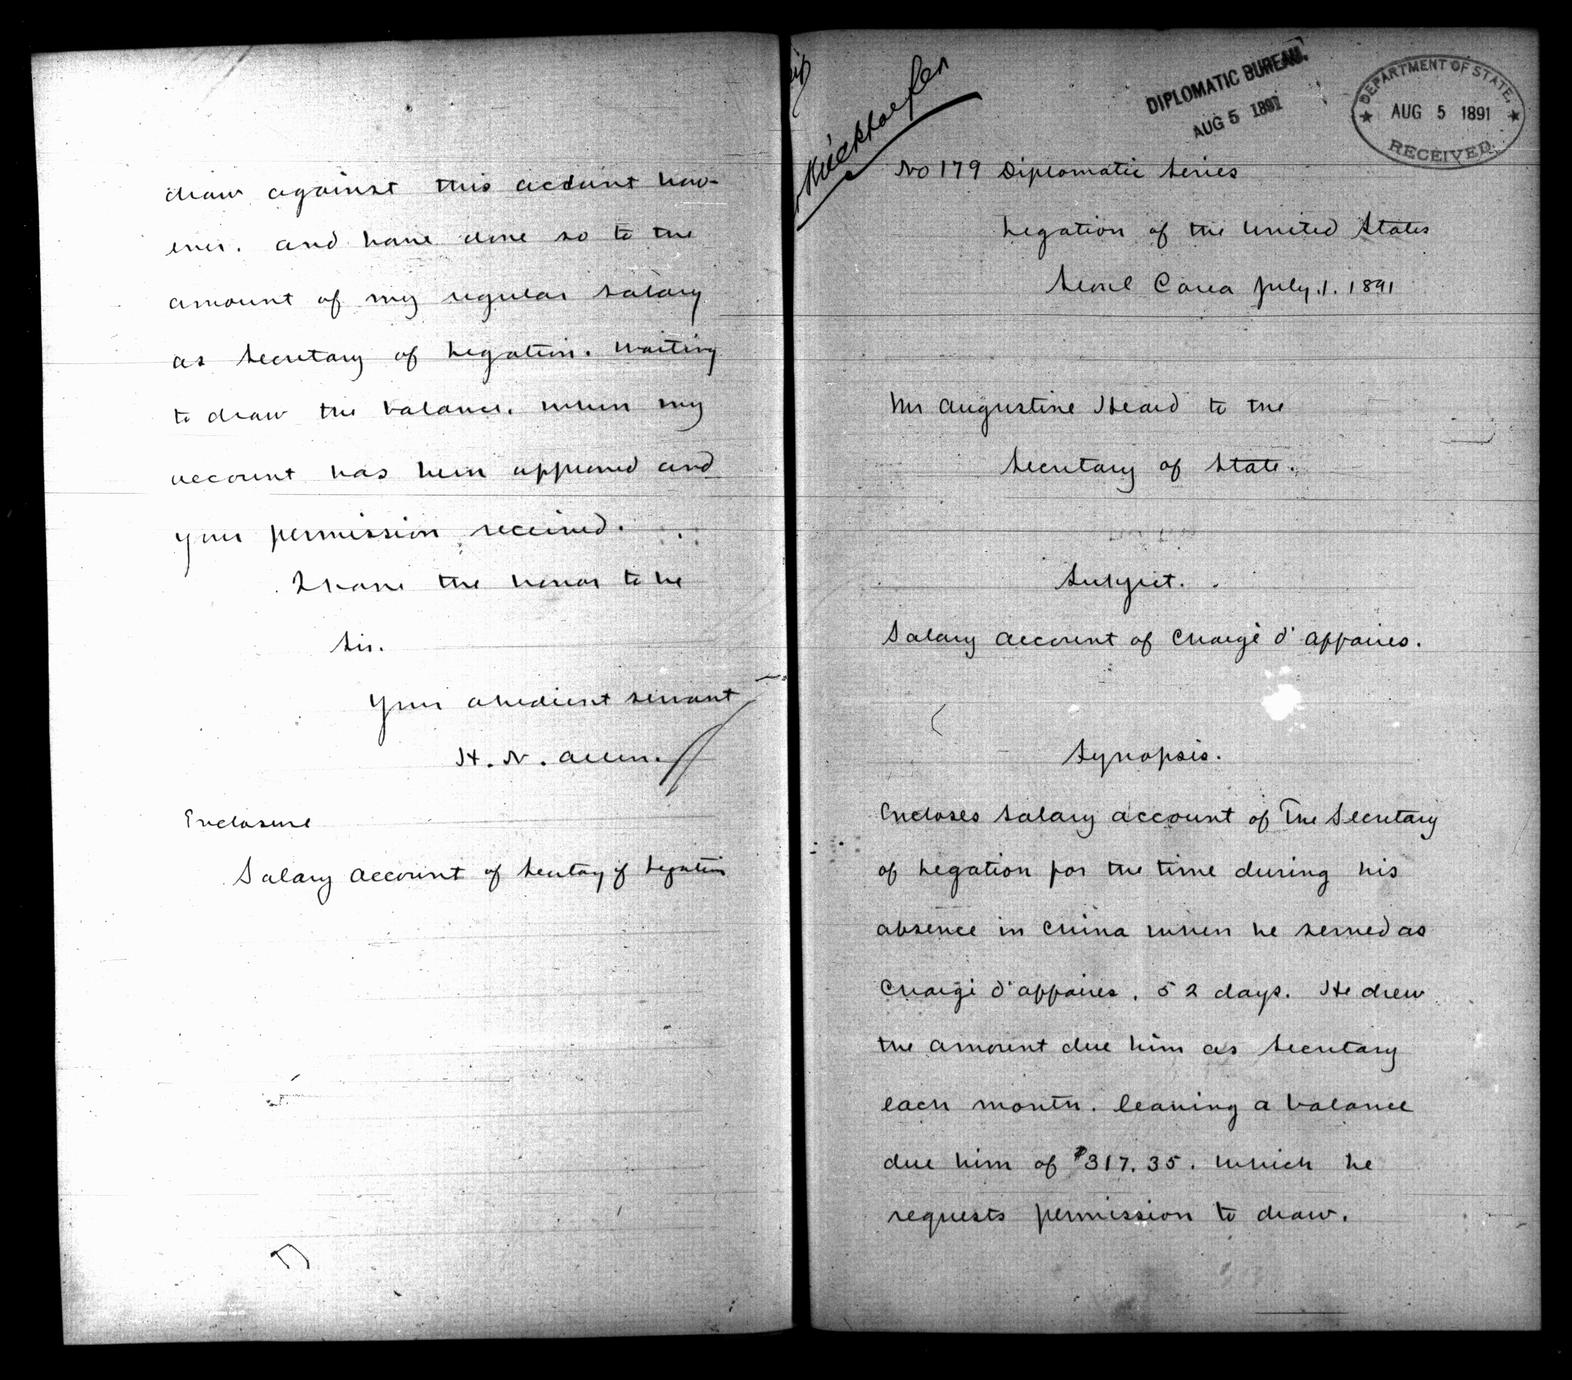 draw against this account how-
ever. and have done so to the
amount of my regular salary
as Secretary of Legation. waiting
to draw the balance. when my
account has been approved and
your permission received.
I have the honor to be
Sir.
Your obedient servant
H. N. Allen.
Enclosure
Salary account of Secretary of Legation
DIPLOMATIC BUREAU.
AUG 5 1891
DEPARTMENT OF STATE.
AUG 5 1891
RECEIVED.
No 179 Diplomatic Series
Legation of the United States
Seoul Corea July. 1. 1891
Mr Augustine Heard to the
Secretary of State.
Subject.
Salary account of Chargé d'affaires.
Synopsis.
Encloses salary account of The Secretary
of Legation for the time during his
absence in China when he served as
Chargé d'affaires, 52 days. He drew
the amount due him as Secretary
each month. leaving a balance
due him of $317.35. which he
requests permission to draw.